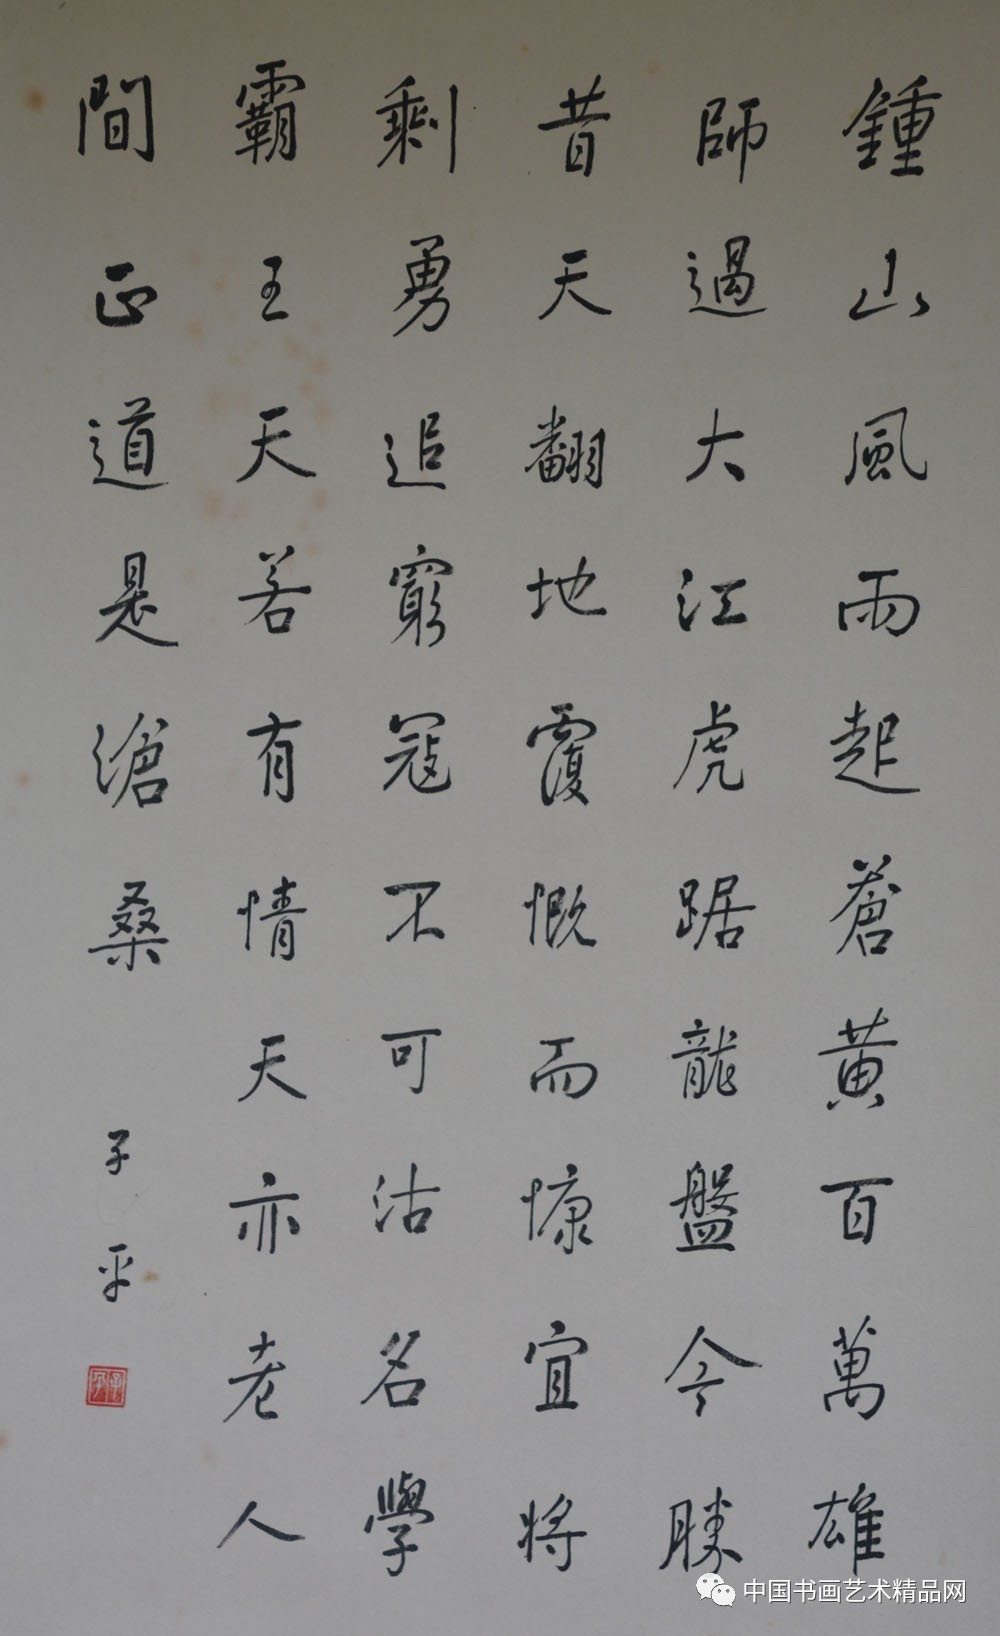 鍾山風雨起蒼黃百萬雄
師過大江虎踞龍盤今勝
昔天翻地覆慨而慷宜將
剩勇追窮寇不可沽名學
霸王天若有情天亦老人
間正道是滄桑
子平
子平
中国书画艺术精品网